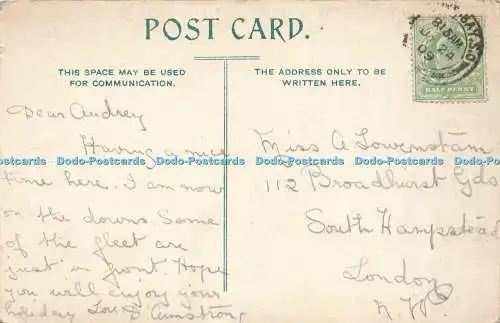 POST CARD.
THIS SPACE MAY BE USED
FOR COMMUNICATION.
THE ADDRESS ONLY TO BE
WRITTEN HERE.
Dear Audrey
Having a nice
time here. I am now
on the downs. Some
of the fleet are
just in front. Hope
you will enjoy your
holiday Love D Armstrong
Miss A Lowenstam
112 Broadhurst Gds
South Hampstead
London
N.W.
HALF PENNY
24
09
Dodo-Postcards Dodo-Postcards Dodo-Postcards Dodo-Postcards Dodo-Postcards